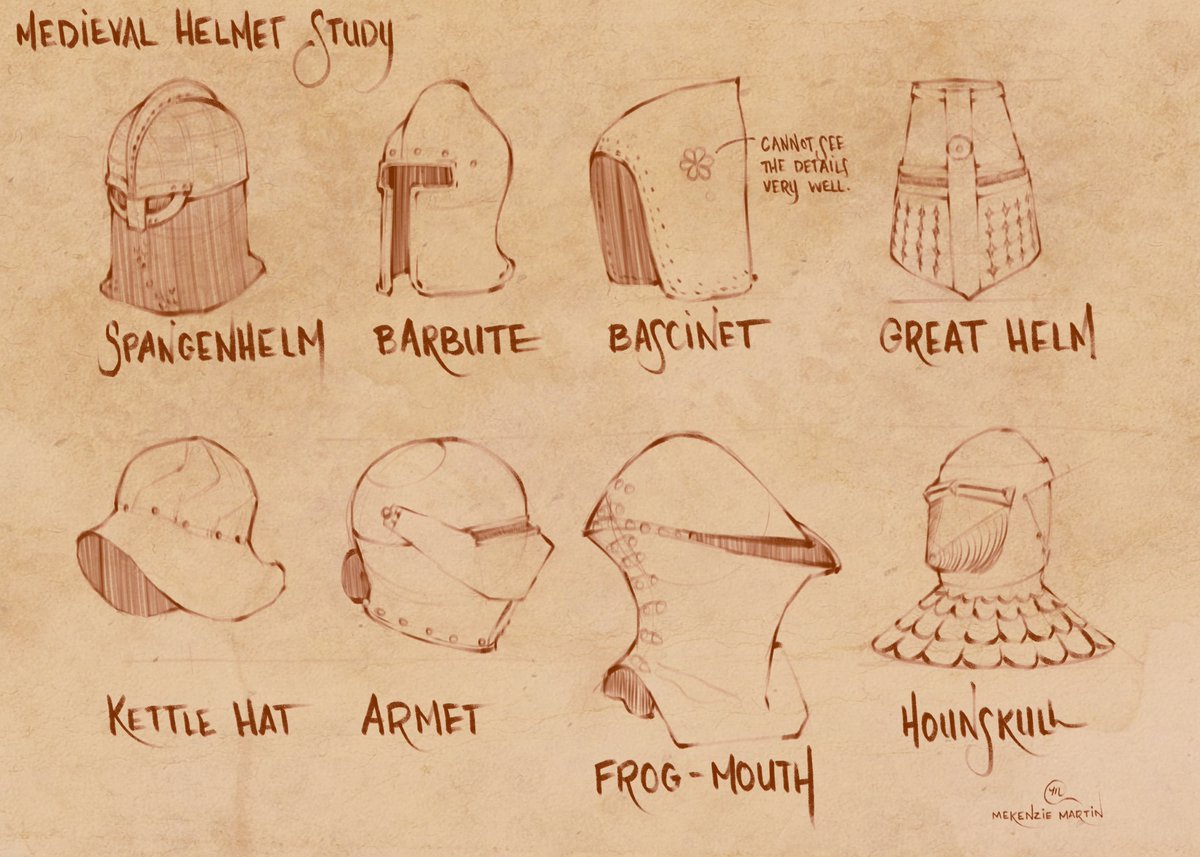 MEDIEVAL HELMET STUDY
CANNOT SEE
THE DETAILS
VERY WELL.
SPANGENHELM
BARBUTE
BASCINET
GREAT HELM
KETTLE HAT
ARMET
FROG-MOUTH
HOUNSKULL
M
MEKENZIE MARTIN